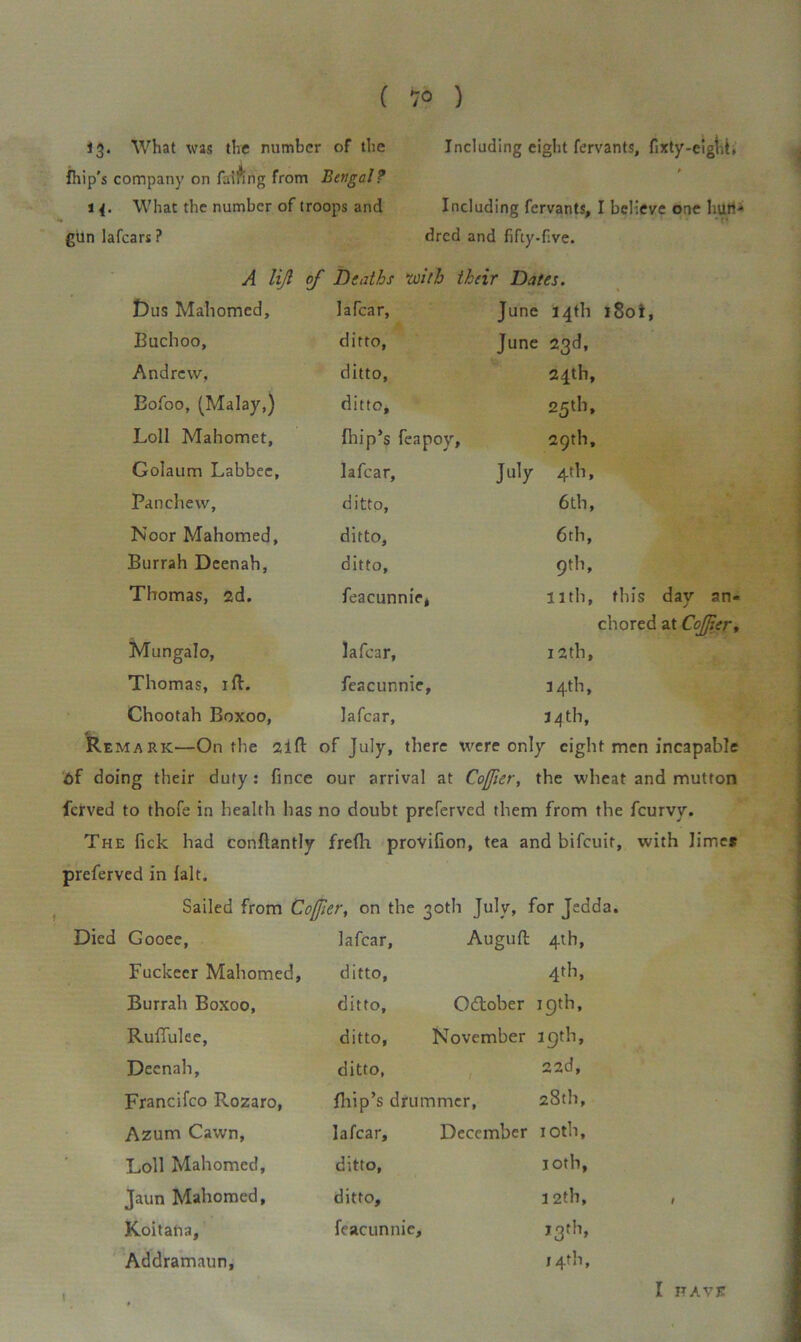 ( 70 )
13. What was the number of the Including eight ſervants, ſixty-eight,
ſhip's company on ſailing from Bengal?
14. What the number of troops and Including ſervants, I believe one hun-
gun laſcars? dred and fifty-five.
A liſt of Deaths with their Dates.
Dus Mahomed, laſcar, June 14th 1801,
Buchoo, ditto, June 23d,
Andrew, ditto, 24th,
Boſoo, (Malay,) ditto, 25th,
Loll Mahomet, ſhip's ſeapoy, 29th,
Golaum Labbee, laſcar, July 4th,
Panchew, ditto, 6th,
Noor Mahomed, ditto, 6th,
Burrah Deenah, ditto, 9th,
Thomas, 2d. ſeacunnie, 11th, this day an-
chored at Coſſier,
Mungalo, laſcar, 12th,
Thomas, 1ſt. ſeacunnie, 14th,
Chootah Boxoo, laſcar, 14th,
Remark—On the 21ſt of July, there were only eight men incapable
of doing their duty: ſince our arrival at Coſſier, the wheat and mutton
ſerved to thoſe in health has no doubt preſerved them from the ſcurvy.
The ſick had conſtantly freſh proviſion, tea and biſcuit, with limes
preſerved in ſalt.
Sailed from Coſſier, on the 30th July, for Jedda.
Died Gooee, laſcar, Auguſt 4th,
Fuckeer Mahomed, ditto, 4th,
Burrah Boxoo, ditto, October 19th,
Ruſſulee, ditto, November 19th,
Deenah, ditto, 22d,
Franciſco Rozaro, ſhip's drummer, 28th,
Azum Cawn, laſcar, December 10th,
Loll Mahomed, ditto, 10th,
Jaun Mahomed, ditto, 12th,
Koitana, ſeacunnie, 13th,
Addramaun, 14th,
I HAVE